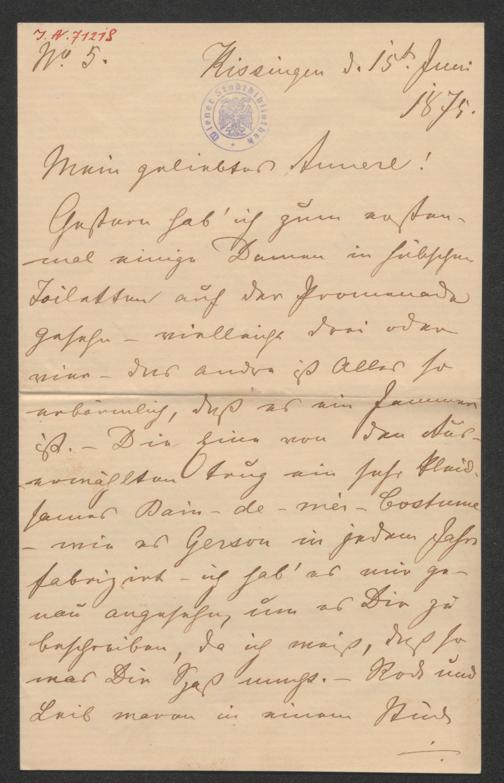 J. N. 71218
No. 5.
Kissingen d. 15t. Juni
1875.
Wiener Stadtbibliothek
Mein geliebtes Annerl!
Gestern hab' ich zum ersten-
mal einige Damen in hübschen
Toiletten auf der Promenade
gesehn – vielleicht drei oder
vier – das andre ist Alles so
erbärmlich, daß es ein Jammer
ist. – Die Eine von den Aus-
erwählten trug ein sehr kleid-
sames Bain-de-mer-Costume
– wie es Gerson in jedem Jahr
fabrizirt – ich hab' es mir ge-
nau angesehn, um es Dir zu
beschreiben, da ich weiß, daß so
was Dir Spaß macht. – Rock und
Leib waren in einem Stück